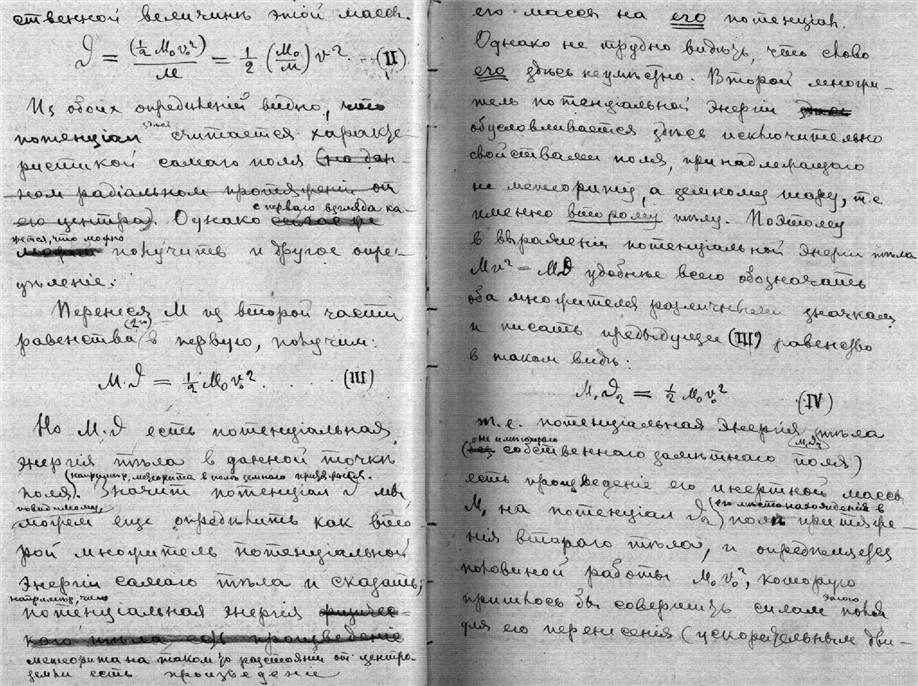 ственной величинѣ этой массы.
𝜗 = (½ M₀v₀²)/M = ½ (M₀/M) v² ... (II)
Из обоих опредѣленій видно, что
потенціал этой считается характе-
ристикой самаго поля (на дан-
ном радіальном протяженіи от
его центра). Однако с перваго взгляда ка-
жется, что можно
получить и другое опре-
дѣленіе:
Перенеся M из второй части
равенства (2ой) в первую, получим:
M.𝜗 = ½ M₀v₀² . . . . . (III)
Но M.𝜗 есть потенціальная
энергія тѣла в данной точкѣ
(напримѣр, метеорита в полѣ земного притяженія.
поля). Значит потенціал 𝜗 мы,
повидимому,
можем еще опредѣлить как вто-
рой множитель потенціальной
энергіи самаго тѣла и сказать,
напримѣр, что
потенціальная энергія физичес-
каго тѣла есть произведеніе
метеорита на таком-то разстояніи от центра
земли есть произведеніе
его массы на его потенціал.
Однако не трудно видѣть, что слово
его здѣсь неумѣстно. Второй множи-
тель потенціальной энергіи здѣсь
обусловливается здѣсь исключительно
свойствами поля, принадлежащаго
не метеориту, а земному шару, т.е
именно второму тѣлу. Поэтому
в выраженіи потенціальной энергіи тѣла
Mv² = M𝜗 удобнѣе всего обозначать
оба множителя различными значками
и писать предыдущее (III) равенство
в таком видѣ:
M₁𝜗₂ = ½ M₀v₀² (IV)
т.е. потенціальная энергія тѣла (M₁𝜗₂)
(не имѣющаго
без собственнаго замѣтнаго поля)
есть произведеніе его инертной массы
M₁ на потенціал 𝜗₂ (его мѣстонахожденія в
) поля притяже-
нія второго тѣла, и опредѣляется
половиной работы M₀v₀², которую
пришлось бы совершить силам этого поля
для его перенесенія (ускорительным дви-